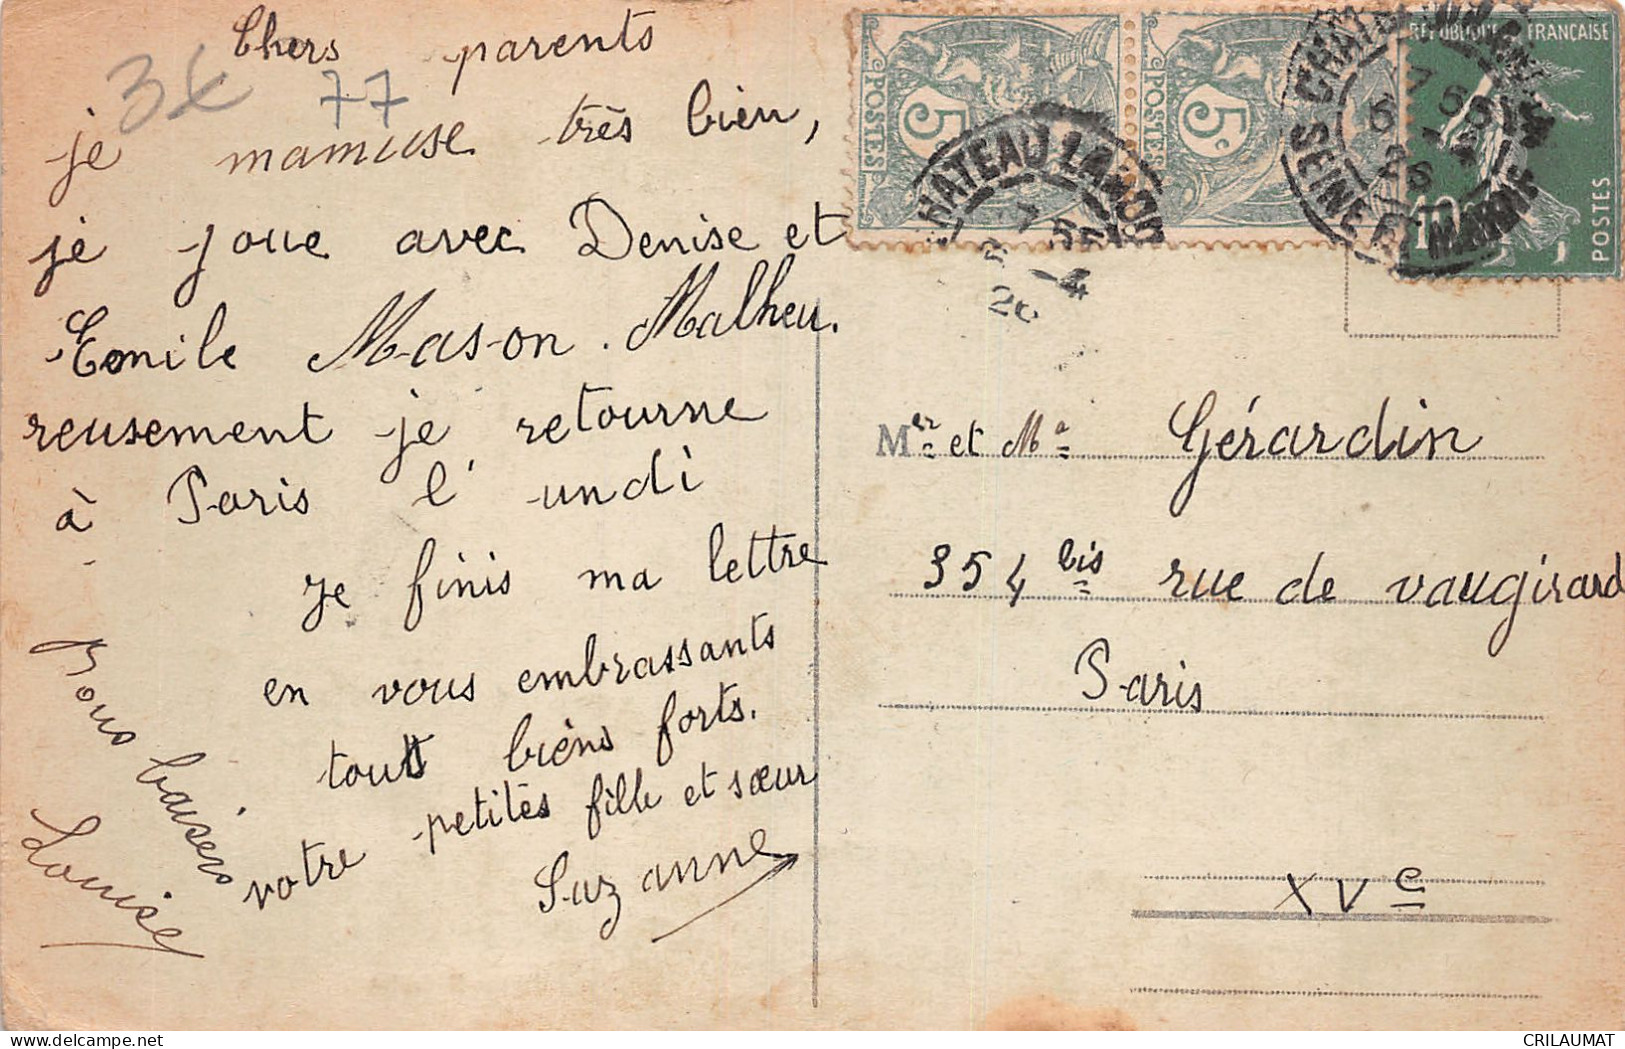 Chers parents
3€ 77
je mamuse très bien,
je joue avec Denise et
Emile Mason. Malheu.
reusement je retourne
à Paris l'undi
je finis ma lettre
en vous embrassants
touts biens forts.
votre petites fille et sœur
Suzanne
Bons baisers
Louise
POSTES 5c
POSTES 5c
REPUBLIQUE FRANÇAISE
10c POSTES
CHATEAU LANDON
7 55
-4
CHATEAU LANDON
SEINE ET MARNE
7 55
6 -4
26
Mer et Ma Gérardin
354 bis rue de vaugirard
Paris
XVe
CRILAUMAT